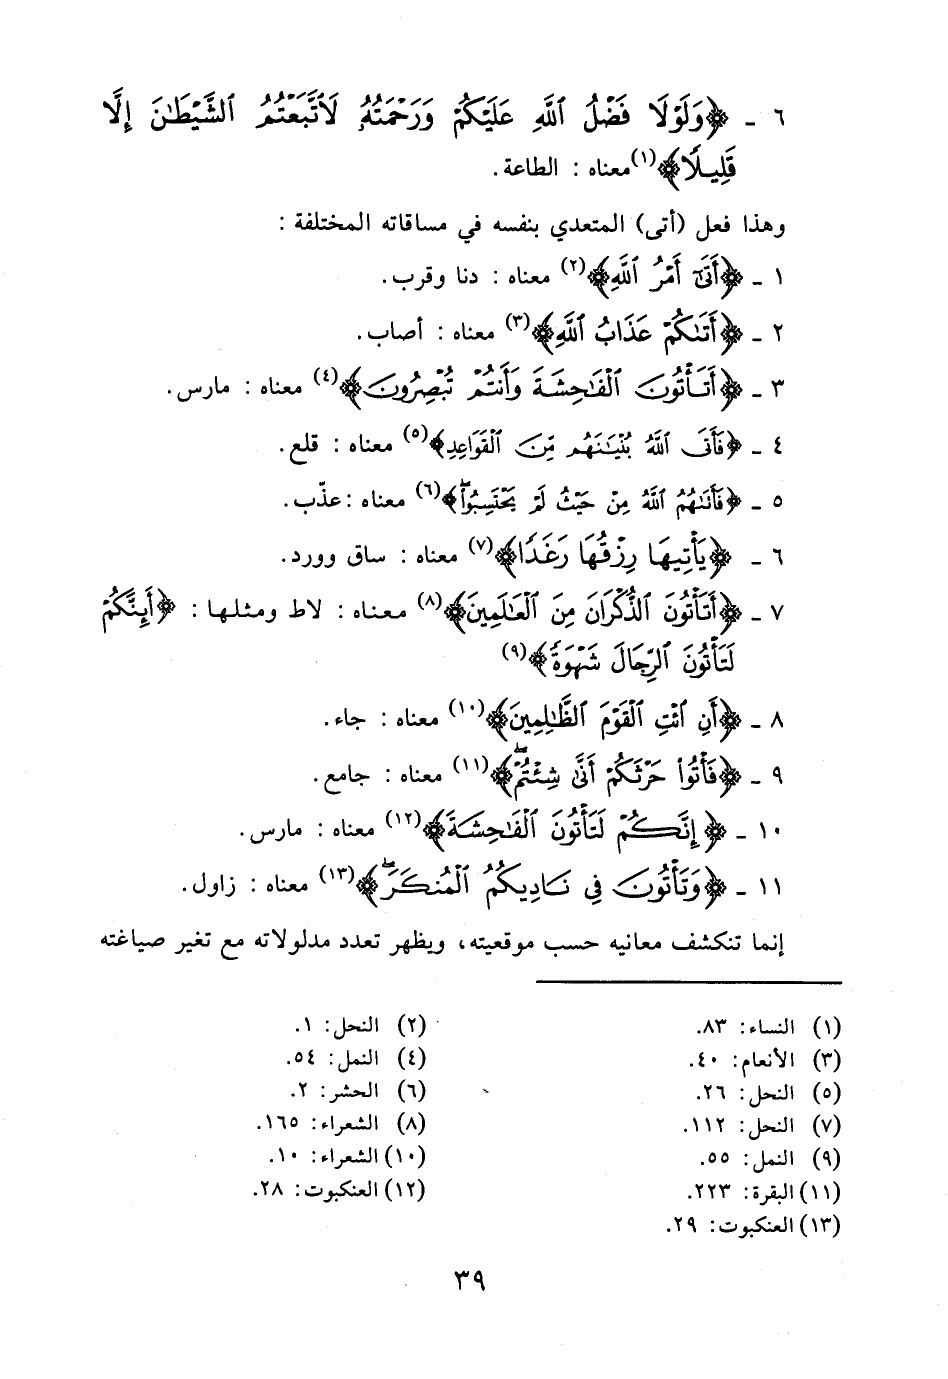 ٦ ـ ﴿وَلَوْلَا فَضْلُ ٱللَّهِ عَلَيْكُمْ وَرَحْمَتُهُۥ لَٱتَّبَعْتُمُ ٱلشَّيْطَٰنَ إِلَّا
قَلِيلًا﴾(١) معناه : الطاعة .
وهذا فعل (أتى) المتعدي بنفسه في مساقاته المختلفة :
١ ـ ﴿أَتَىٰٓ أَمْرُ ٱللَّهِ﴾(٢) معناه : دنا وقرب .
٢ ـ ﴿أَتَىٰكُمْ عَذَابُ ٱللَّهِ﴾(٣) معناه : أصاب .
٣ ـ ﴿أَتَأْتُونَ ٱلْفَٰحِشَةَ وَأَنتُمْ تُبْصِرُونَ﴾(٤) معناه : مارس .
٤ ـ ﴿فَأَتَى ٱللَّهُ بُنْيَٰنَهُم مِّنَ ٱلْقَوَاعِدِ﴾(٥) معناه : قلع .
٥ ـ ﴿فَأَتَىٰهُمُ ٱللَّهُ مِنْ حَيْثُ لَمْ يَحْتَسِبُوا۟ۖ﴾(٦) معناه : عذّب .
٦ ـ ﴿يَأْتِيهَا رِزْقُهَا رَغَدًا﴾(٧) معناه : ساق وورد .
٧ ـ ﴿أَتَأْتُونَ ٱلذُّكْرَانَ مِنَ ٱلْعَٰلَمِينَ﴾(٨) معناه : لاط ومثلها : ﴿أَئِنَّكُمْ
لَتَأْتُونَ ٱلرِّجَالَ شَهْوَةً﴾(٩)
٨ ـ ﴿أَنِ ٱئْتِ ٱلْقَوْمَ ٱلظَّٰلِمِينَ﴾(١٠) معناه : جاء .
٩ ـ ﴿فَأْتُوا۟ حَرْثَكُمْ أَنَّىٰ شِئْتُمْۖ﴾(١١) معناه : جامع .
١٠ ـ ﴿إِنَّكُمْ لَتَأْتُونَ ٱلْفَٰحِشَةَ﴾(١٢) معناه : مارس .
١١ ـ ﴿وَتَأْتُونَ فِى نَادِيكُمُ ٱلْمُنكَرَۖ﴾(١٣) معناه : زاول .
إنما تنكشف معانيه حسب موقعيته، ويظهر تعدد مدلولاته مع تغير صياغته
(١) النساء: ٨٣. (٢) النحل: ١.
(٣) الأنعام: ٤٠. (٤) النمل: ٥٤.
(٥) النحل: ٢٦. (٦) الحشر: ٢.
(٧) النحل: ١١٢. (٨) الشعراء: ١٦٥.
(٩) النمل: ٥٥. (١٠) الشعراء: ١٠.
(١١) البقرة: ٢٢٣. (١٢) العنكبوت: ٢٨.
(١٣) العنكبوت: ٢٩.
٣٩